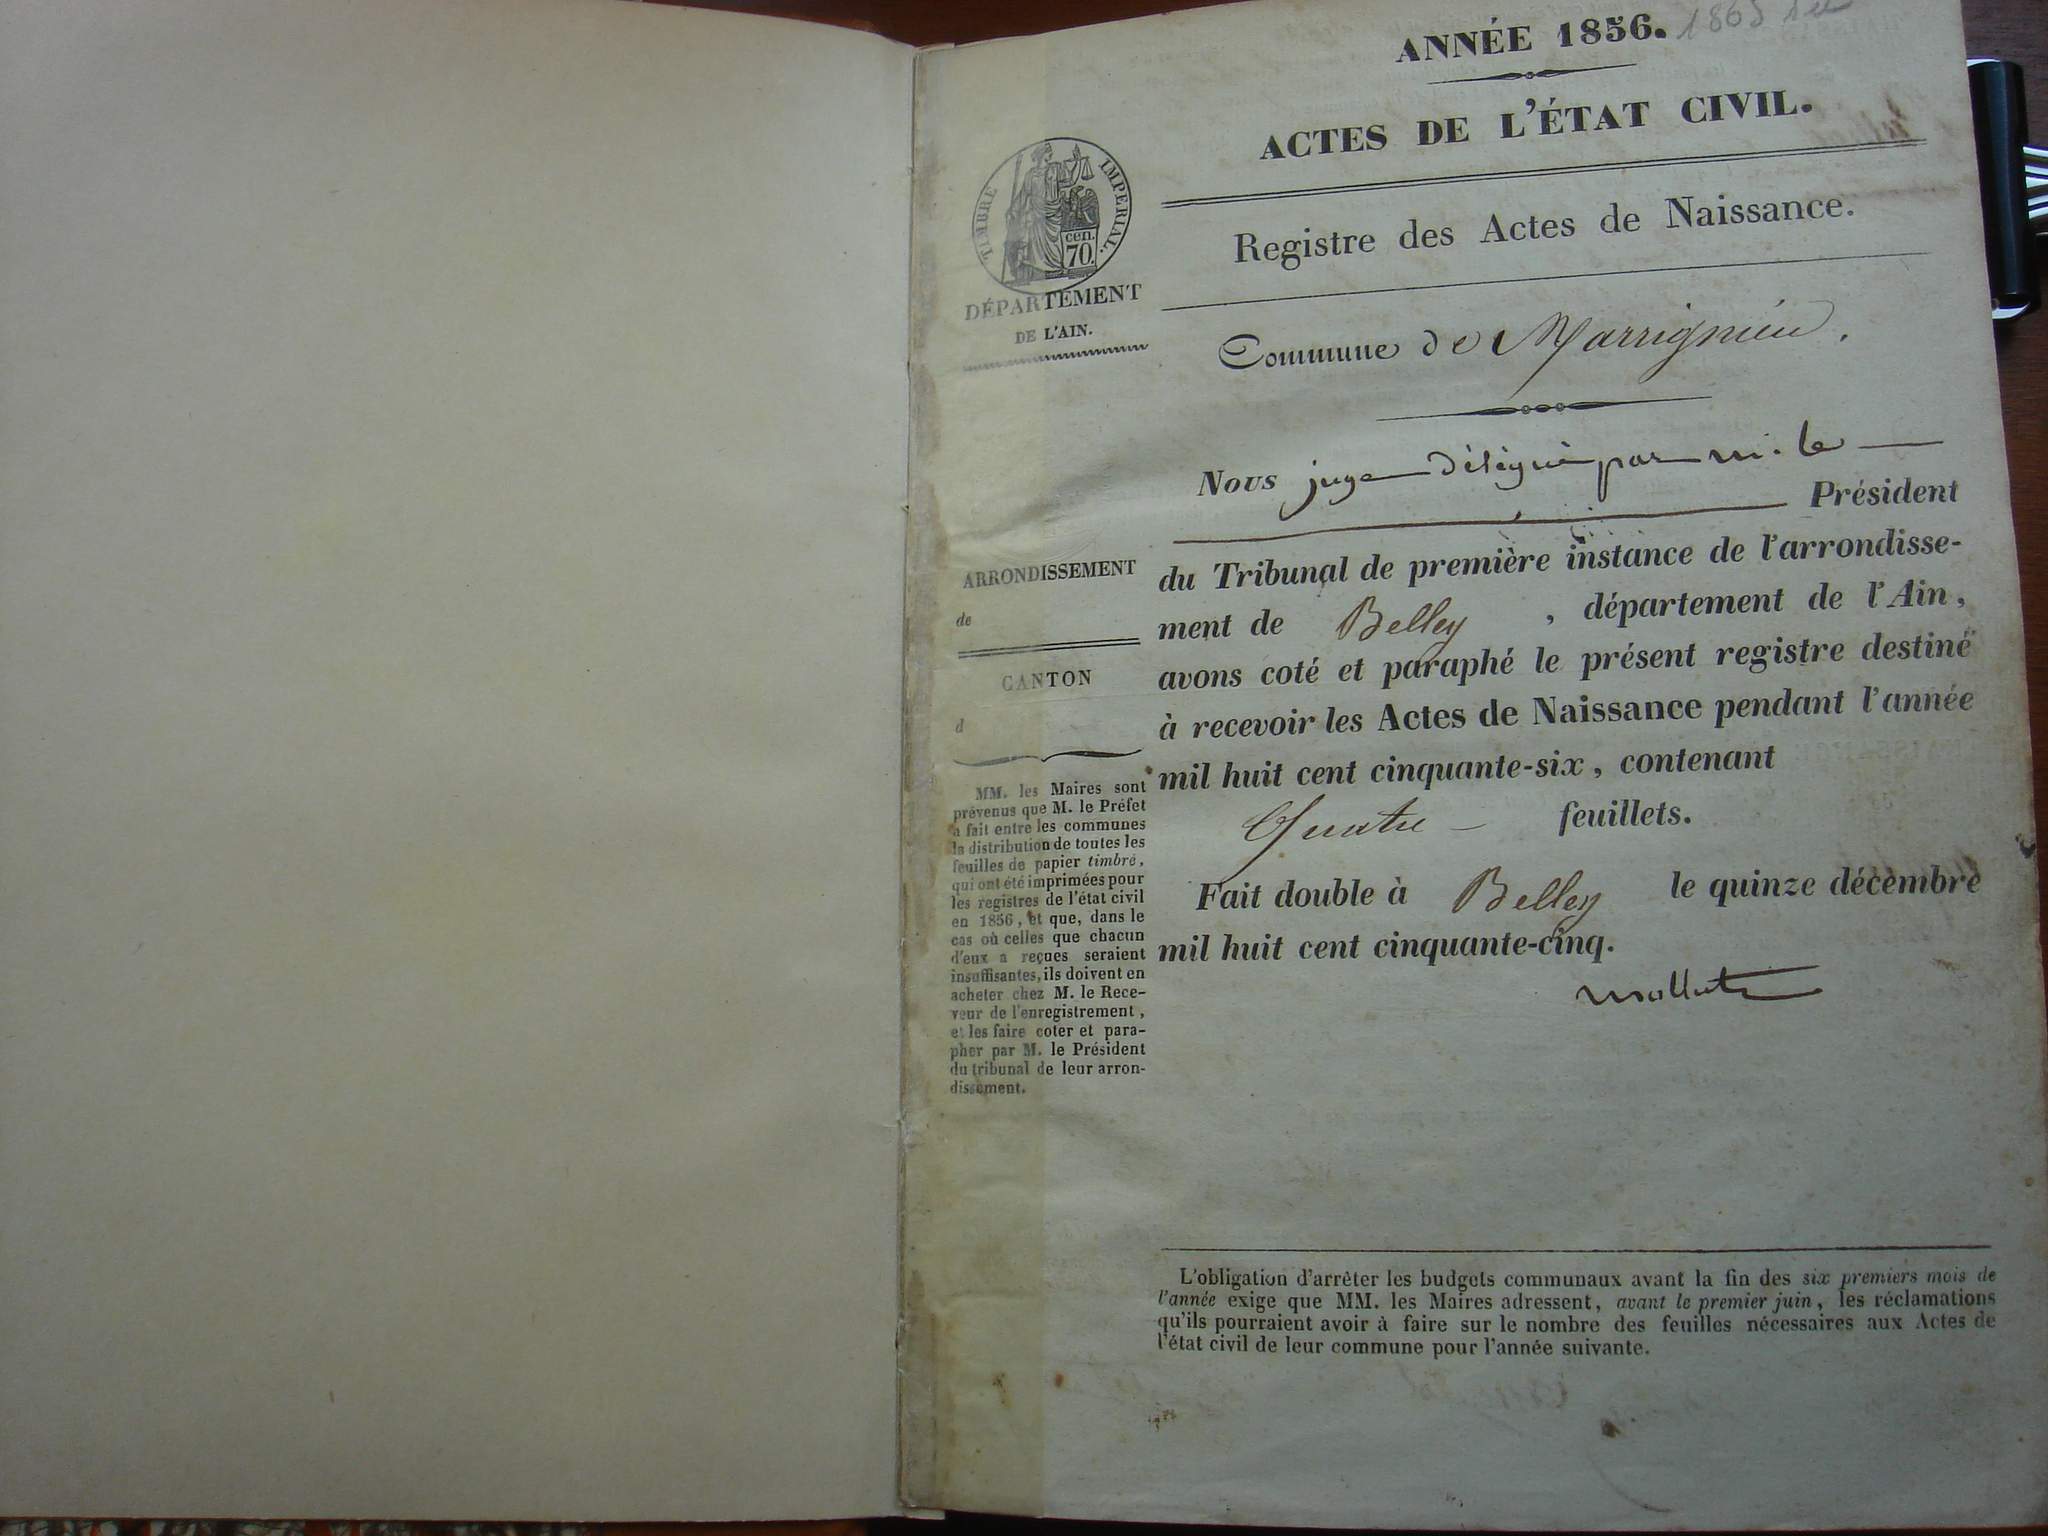 ANNÉE 1856. 1865
ACTES DE L'ÉTAT CIVIL.
Registre des Actes de Naissance.
Commune de Marrignieu.
TIMBRE IMPERIAL.
cen.
70.
DÉPARTEMENT
DE L'AIN.
ARRONDISSEMENT
de
CANTON
d
MM. les Maires sont
prévenus que M. le Préfet
a fait entre les communes
la distribution de toutes les
feuilles de papier timbré,
qui ont été imprimées pour
les registres de l'état civil
en 1856, et que, dans le
cas où celles que chacun
d'eux a reçues seraient
insuffisantes, ils doivent en
acheter chez M. le Rece-
veur de l'enregistrement,
et les faire coter et para-
pher par M. le Président
du tribunal de leur arron-
dissement.
Nous juge délégué par m. le
Président
du Tribunal de première instance de l'arrondisse-
ment de Belley, département de l'Ain,
avons coté et paraphé le présent registre destiné
à recevoir les Actes de Naissance pendant l'année
mil huit cent cinquante-six, contenant
Quatre feuillets.
Fait double à Belley le quinze décembre
mil huit cent cinquante-cinq.
L'obligation d'arrêter les budgets communaux avant la fin des six premiers mois de
l'année exige que MM. les Maires adressent, avant le premier juin, les réclamations
qu'ils pourraient avoir à faire sur le nombre des feuilles nécessaires aux Actes de
l'état civil de leur commune pour l'année suivante.